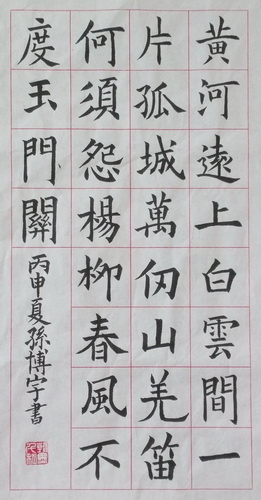 黄河遠上白雲間一
片孤城萬仞山羌笛
何須怨楊柳春風不
度玉門關
丙申夏孫博宇書